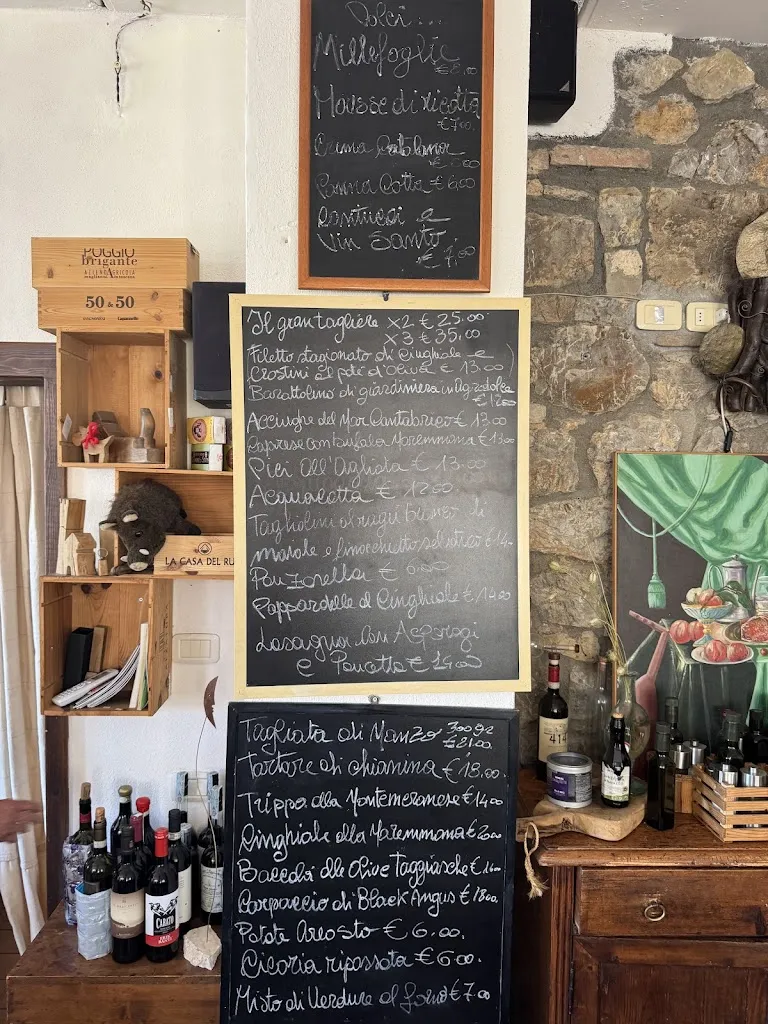 Dolci...
Millefoglie
€8,00
Mousse di ricotta
€7,00.
Crema Catalana
Panna Cotta € 6,00
Cantucci e
Vin Santo.
€ 7,00
POGGIO
brigante
50 & 50
LA CASA DEL RU
Il gran tagliere x2 € 25.00
x3 € 35,00
Filetto stagionato di Cinghiale e
Crostini al patè d'Oliva € 13.00
Barattolino di giardiniera in Agrodolce
€ 12,00
Acciughe del Mar Cantabrico € 13.00
Caprese con bufala Maremmana € 13.00
Pici All'Aglione € 13.00
Acquacotta € 12.00
Tagliolini al ragù bianco di
maiale e finocchietto selvatico € 14.
Panzanella €
Pappardelle al Cinghiale € 14.00
Lasagna con Asparagi
e Pancetta € 14.00
Tagliata di Manzo 300gr
€ 21.00.
Tartare di chianina € 18.00.
Trippa alla Montemeranese € 14.00
Cinghiale alla Maremmana € 20.00
Baccalà alle Olive Taggiasche €
Carpaccio di Black Angus € 18.00.
Patate Arrosto € 6.00.
Cicoria ripassata € 6.00.
Misto di Verdure al forno € 7.00
414